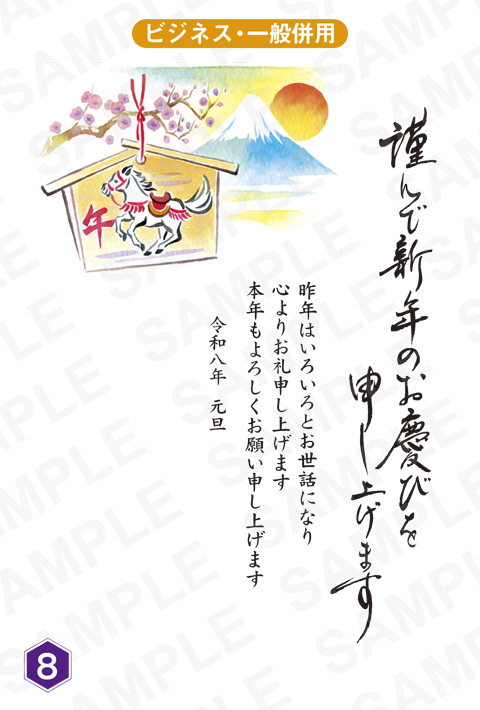 ビジネス・一般併用
謹んで新年のお慶びを
申し上げます
昨年はいろいろとお世話になり
心よりお礼申し上げます
本年もよろしくお願い申し上げます
令和八年 元旦
午
8
SAMPLE